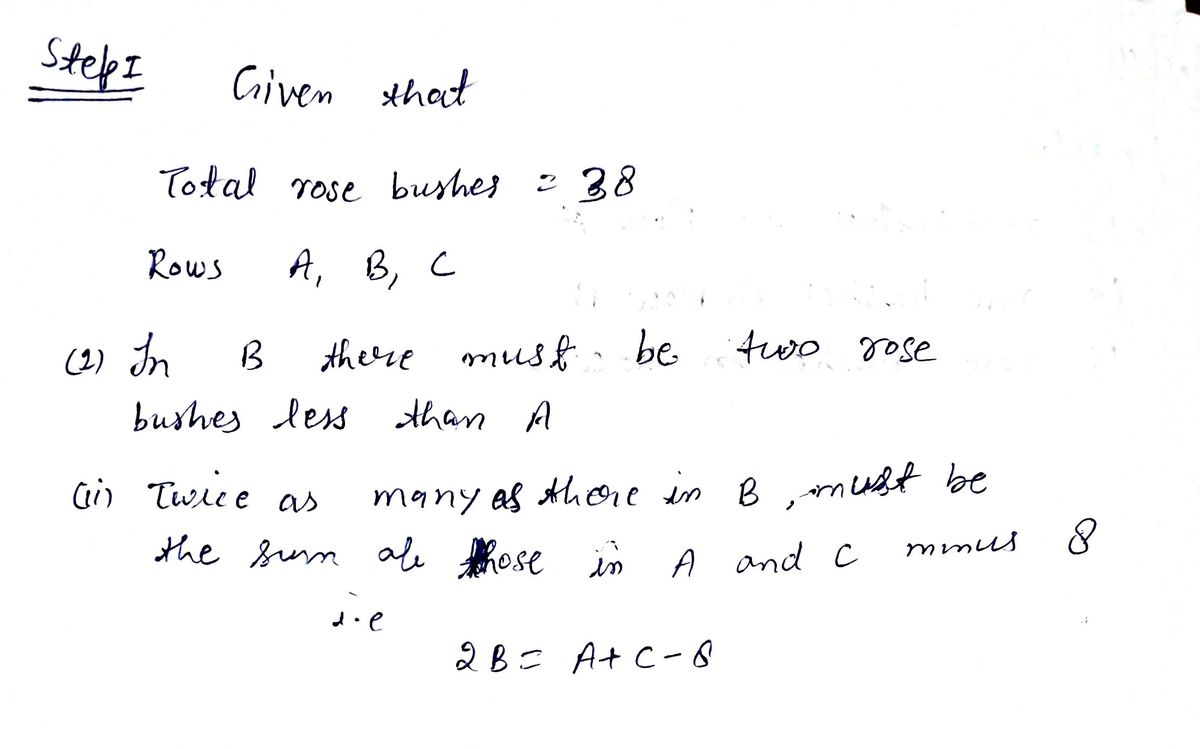 Step I
Given that
Total rose bushes = 38
Rows A, B, C
(1) In B there must be two rose
bushes less than A
(ii) Twice as many as there in B, must be
the sum of those in A and C minus 8
i.e
2B = A + C - 8